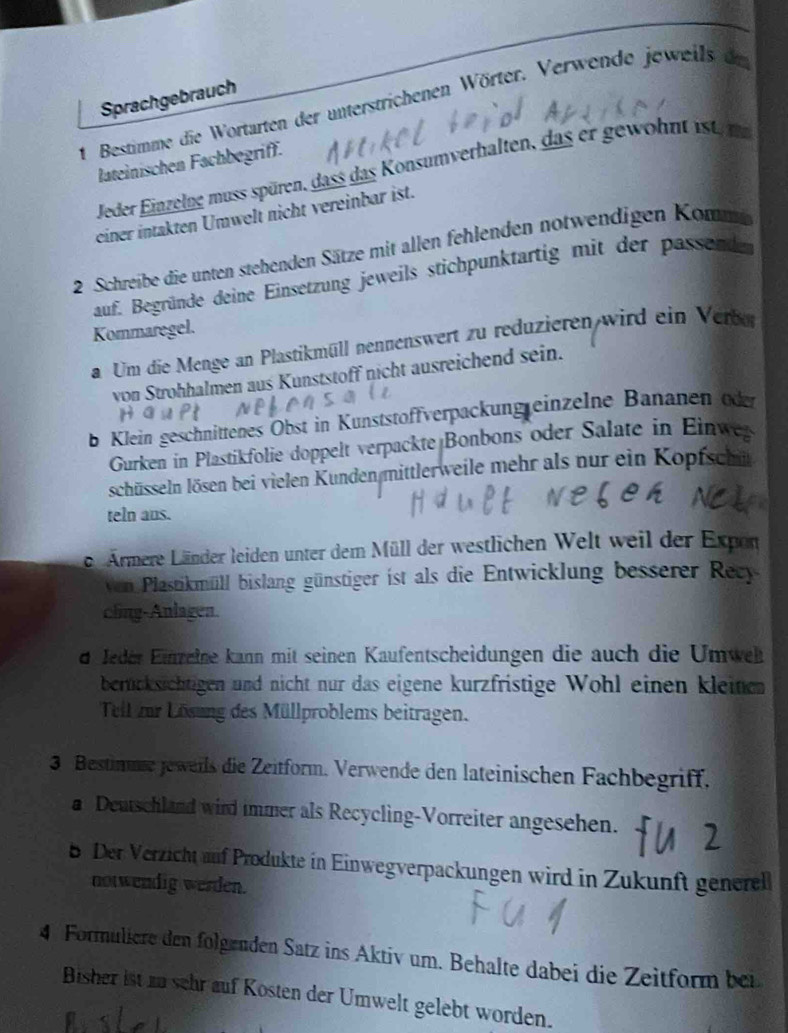 Sprachgebrauch
1 Bestimme die Wortarten der unterstrichenen Wörter. Verwende jeweils
lateinischen Fachbegriff.
Artikel
Jeder Einzelne muss spüren, dass das Konsumverhalten, das er gewohnt ist,
einer intakten Umwelt nicht vereinbar ist.
2 Schreibe die unten stehenden Sätze mit allen fehlenden notwendigen
auf. Begründe deine Einsetzung jeweils stichpunktartig mit der
Kommaregel.
a Um die Menge an Plastikmüll nennenswert zu reduzieren wird ein
von Strohhalmen aus Kunststoff nicht ausreichend sein.
Haupt
b Klein geschnittenes Obst in Kunststoffverpackung einzelne Bananen oder
Gurken in Plastikfolie doppelt verpackte Bonbons oder Salate in Einweg-
schüsseln lösen bei vielen Kunden mittlerweile mehr als nur ein Kopfschüt
teln aus.
Haupt Neben
c Ärmere Länder leiden unter dem Müll der westlichen Welt weil der Export
von Plastikmüll bislang günstiger ist als die Entwicklung besserer Recy-
cling-Anlagen.
d Jeder Einzelne kann mit seinen Kaufentscheidungen die auch die Umwelt
berücksichtigen und nicht nur das eigene kurzfristige Wohl einen kleinen
Teil zur Lösung des Müllproblems beitragen.
3 Bestimme jeweils die Zeitform. Verwende den lateinischen Fachbegriff.
a Deutschland wird immer als Recycling-Vorreiter angesehen.
fu 2
b Der Verzicht auf Produkte in Einwegverpackungen wird in Zukunft generell
notwendig werden.
Fu 1
4 Formuliere den folgenden Satz ins Aktiv um. Behalte dabei die Zeitform bei.
Bisher ist zu sehr auf Kosten der Umwelt gelebt worden.